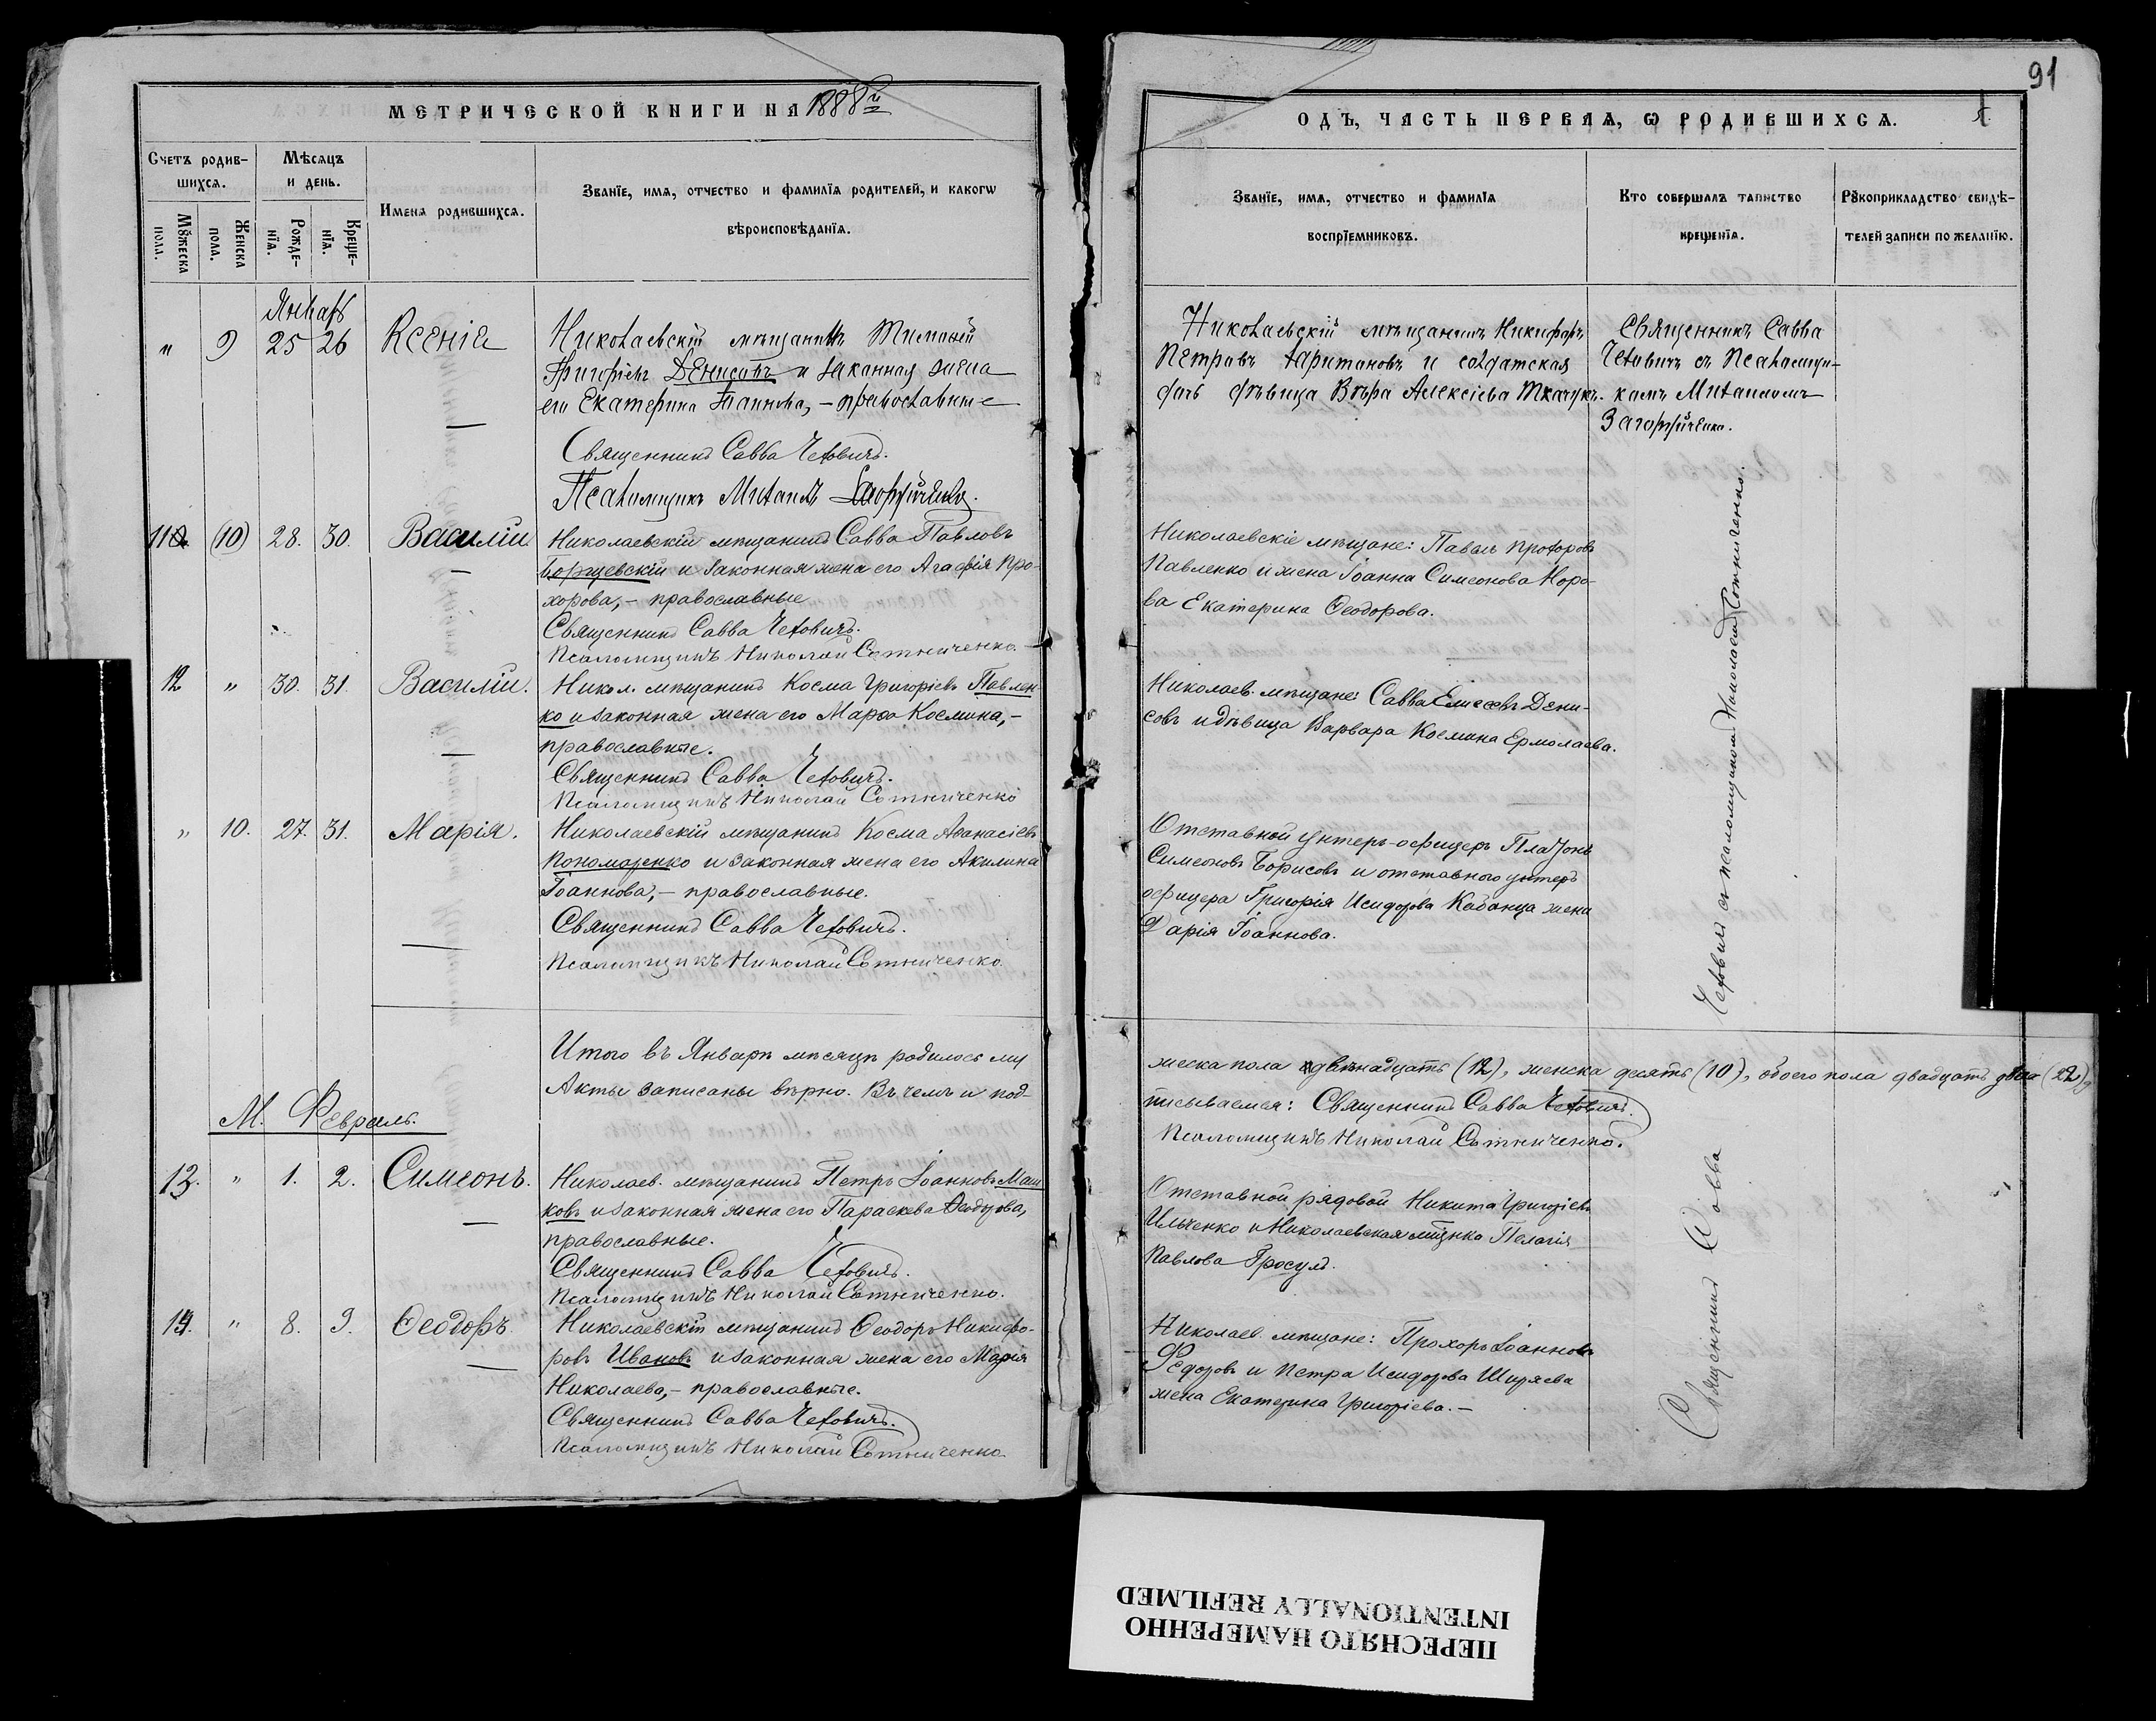 91
МЕТРИЧЕСКОЙ КНИГИ НА 1888й
ОДЪ, ЧАСТЬ ПЕРВАѦ, Ѡ РОДИВШИХСѦ.
Счетъ родив-
шихсѧ.
Мѣсѧцъ
и день.
Мꙋжеска
пола.
Женска
пола.
Рожде-
нїѧ.
Креще-
нїѧ.
Имена родившихсѧ.
Званїе, имѧ, отчество и фамилїѧ родителей, и какогѡ
вѣроисповѣданїѧ.
Званїе, имѧ, отчество и фамилїѧ
воспрїемниковъ.
Кто совершалъ таинство
крещенїѧ.
Рꙋкоприкладство свидѣ-
телей записи по желанїю.
Январь
" 9 25 26 Ксенія
Николаевскій мѣщанинъ Тимофей
Григорьев Денисовъ и законная жена
его Екатерина Іоаннова, – православные
Священникъ Савва Чехович.
Псаломщикъ Михаилъ
Николаевскій мѣщанинъ Никифоръ
Петровъ Харитоновъ и солдатская
дочь дѣвица Вѣра Алексіева Ткачук.
Священникъ Савва
Чехович съ Псаломщи-
комъ Михаиломъ
11 (10) 28. 30. Василій
Николаевскій мѣщанинъ Савва Павловъ
Борщевскій и законная жена его Агафія Про-
хорова, – православные
Священникъ Савва Чеховичъ.
Псаломщикъ Николай Сотниченко.
Николаевскіе мѣщане: Павелъ Прохоровъ
Павленко и жена Іоанна Симеонова Норо-
ва Екатерина Ѳеодорова.
12 " 30. 31. Василій.
Никол. мѣщанинъ Косма Григоріевъ Павлен-
ко и законная жена его Марѳа Космина, –
православные.
Священникъ Савва Чеховичъ.
Псаломщикъ Николай Сотниченко
Николаев. мѣщане: Савва Елисеевъ Дени-
совъ и дѣвица Варвара Космина Ермолаева.
" 10. 27. 31. Марія.
Николаевскій мѣщанинъ Косма Аѳанасіевъ
Пономаренко и законная жена его Акилина
Іоаннова, – православные.
Священникъ Савва Чеховичъ.
Псаломщикъ Николай Сотниченко.
Отставной унтеръ-офицеръ Платонъ
Симеоновъ Борисовъ и отставного унтеръ
офицера Григорія Исидорова Кабанца жена
Дарія Іоаннова.
Итого въ Январѣ мѣсяцѣ родилось му
жеска пола двѣнадцать (12), женска десять (10), обоего пола двадцать два (22),
Акты записаны вѣрно. Въ чемъ и под-
писываемся: Священникъ Савва Чеховичъ.
Псаломщикъ Николай Сотниченко.
М. Февраль.
13. " 1. 2. Симеонъ.
Николаев. мѣщанинъ Петръ Іоанновъ Маш
ковъ и законная жена его Параскева Ѳеодорова,
православные.
Священникъ Савва Чеховичъ.
Псаломщикъ Николай Сотниченко.
Отставной рядовой Никита Григоріевъ
Ильченко и Николаевская мѣщнка Пелагія
Павлова Гросулъ.
14. " 8. 9. Ѳеодоръ.
Николаевскій мѣщанинъ Ѳеодоръ Никифо-
ровъ Ивановъ и законная жена его Марія
Николаева, – православные.
Священникъ Савва Чеховичъ.
Псаломщикъ Николай Сотниченко.
Николаев. мѣщане: Прохоръ Іоанновъ
Ѳедоровъ и Петра Исидорова Ширяева
жена Екатерина Григоріева. –
Священникъ Савва Чеховичъ съ псаломщикомъ Николаемъ Сотниченко.
ПЕРЕСНЯТО НАМЕРЕННО
INTENTIONALLY REFILMED